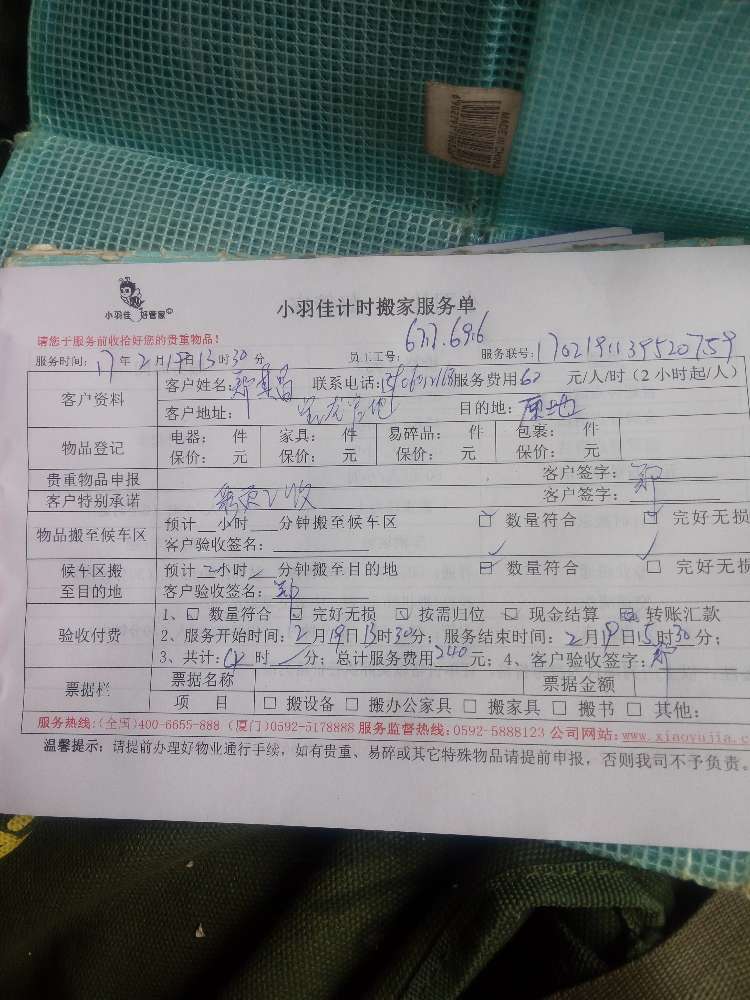 MADE IN CHINA
小羽佳 好管家
小羽佳计时搬家服务单
请您于服务前收拾好您的贵重物品!
服务时间: 17年2月19日13时30分 员工工号: 677.696 服务联号:
客户资料
客户姓名: 联系电话: 服务费用60元/人/时(2小时起/人)
客户地址: 目的地: 原地
物品登记
电器: 件 家具: 件 易碎品: 件 包裹: 件
保价: 元 保价: 元 保价: 元 保价: 元
贵重物品申报 客户签字: 郑
客户特别承诺 客户签字:
物品搬至候车区
预计__小时__分钟搬至候车区 □ 数量符合 □ 完好无损
客户验收签名:
候车区搬至目的地
预计2小时 分钟搬至目的地 □ 数量符合 □ 完好无损
客户验收签名: 郑
验收付费
1、□ 数量符合 □ 完好无损 □ 按需归位 □ 现金结算 □ 转账汇款
2、服务开始时间: 2月19日13时30分; 服务结束时间: 2月19日15时30分;
3、共计: 时 分; 总计服务费用240元; 4、客户验收签字: 郑
票据栏
票据名称 票据金额
项 目 □ 搬设备 □ 搬办公家具 □ 搬家具 □ 搬书 □ 其他:
服务热线:(全国)400-6655-888 (厦门)0592-5178888 服务监督热线:0592-5888123 公司网站:www.xiaoyujia.c
温馨提示: 请提前办理好物业通行手续, 如有贵重、易碎或其它特殊物品请提前申报, 否则我司不予负责。